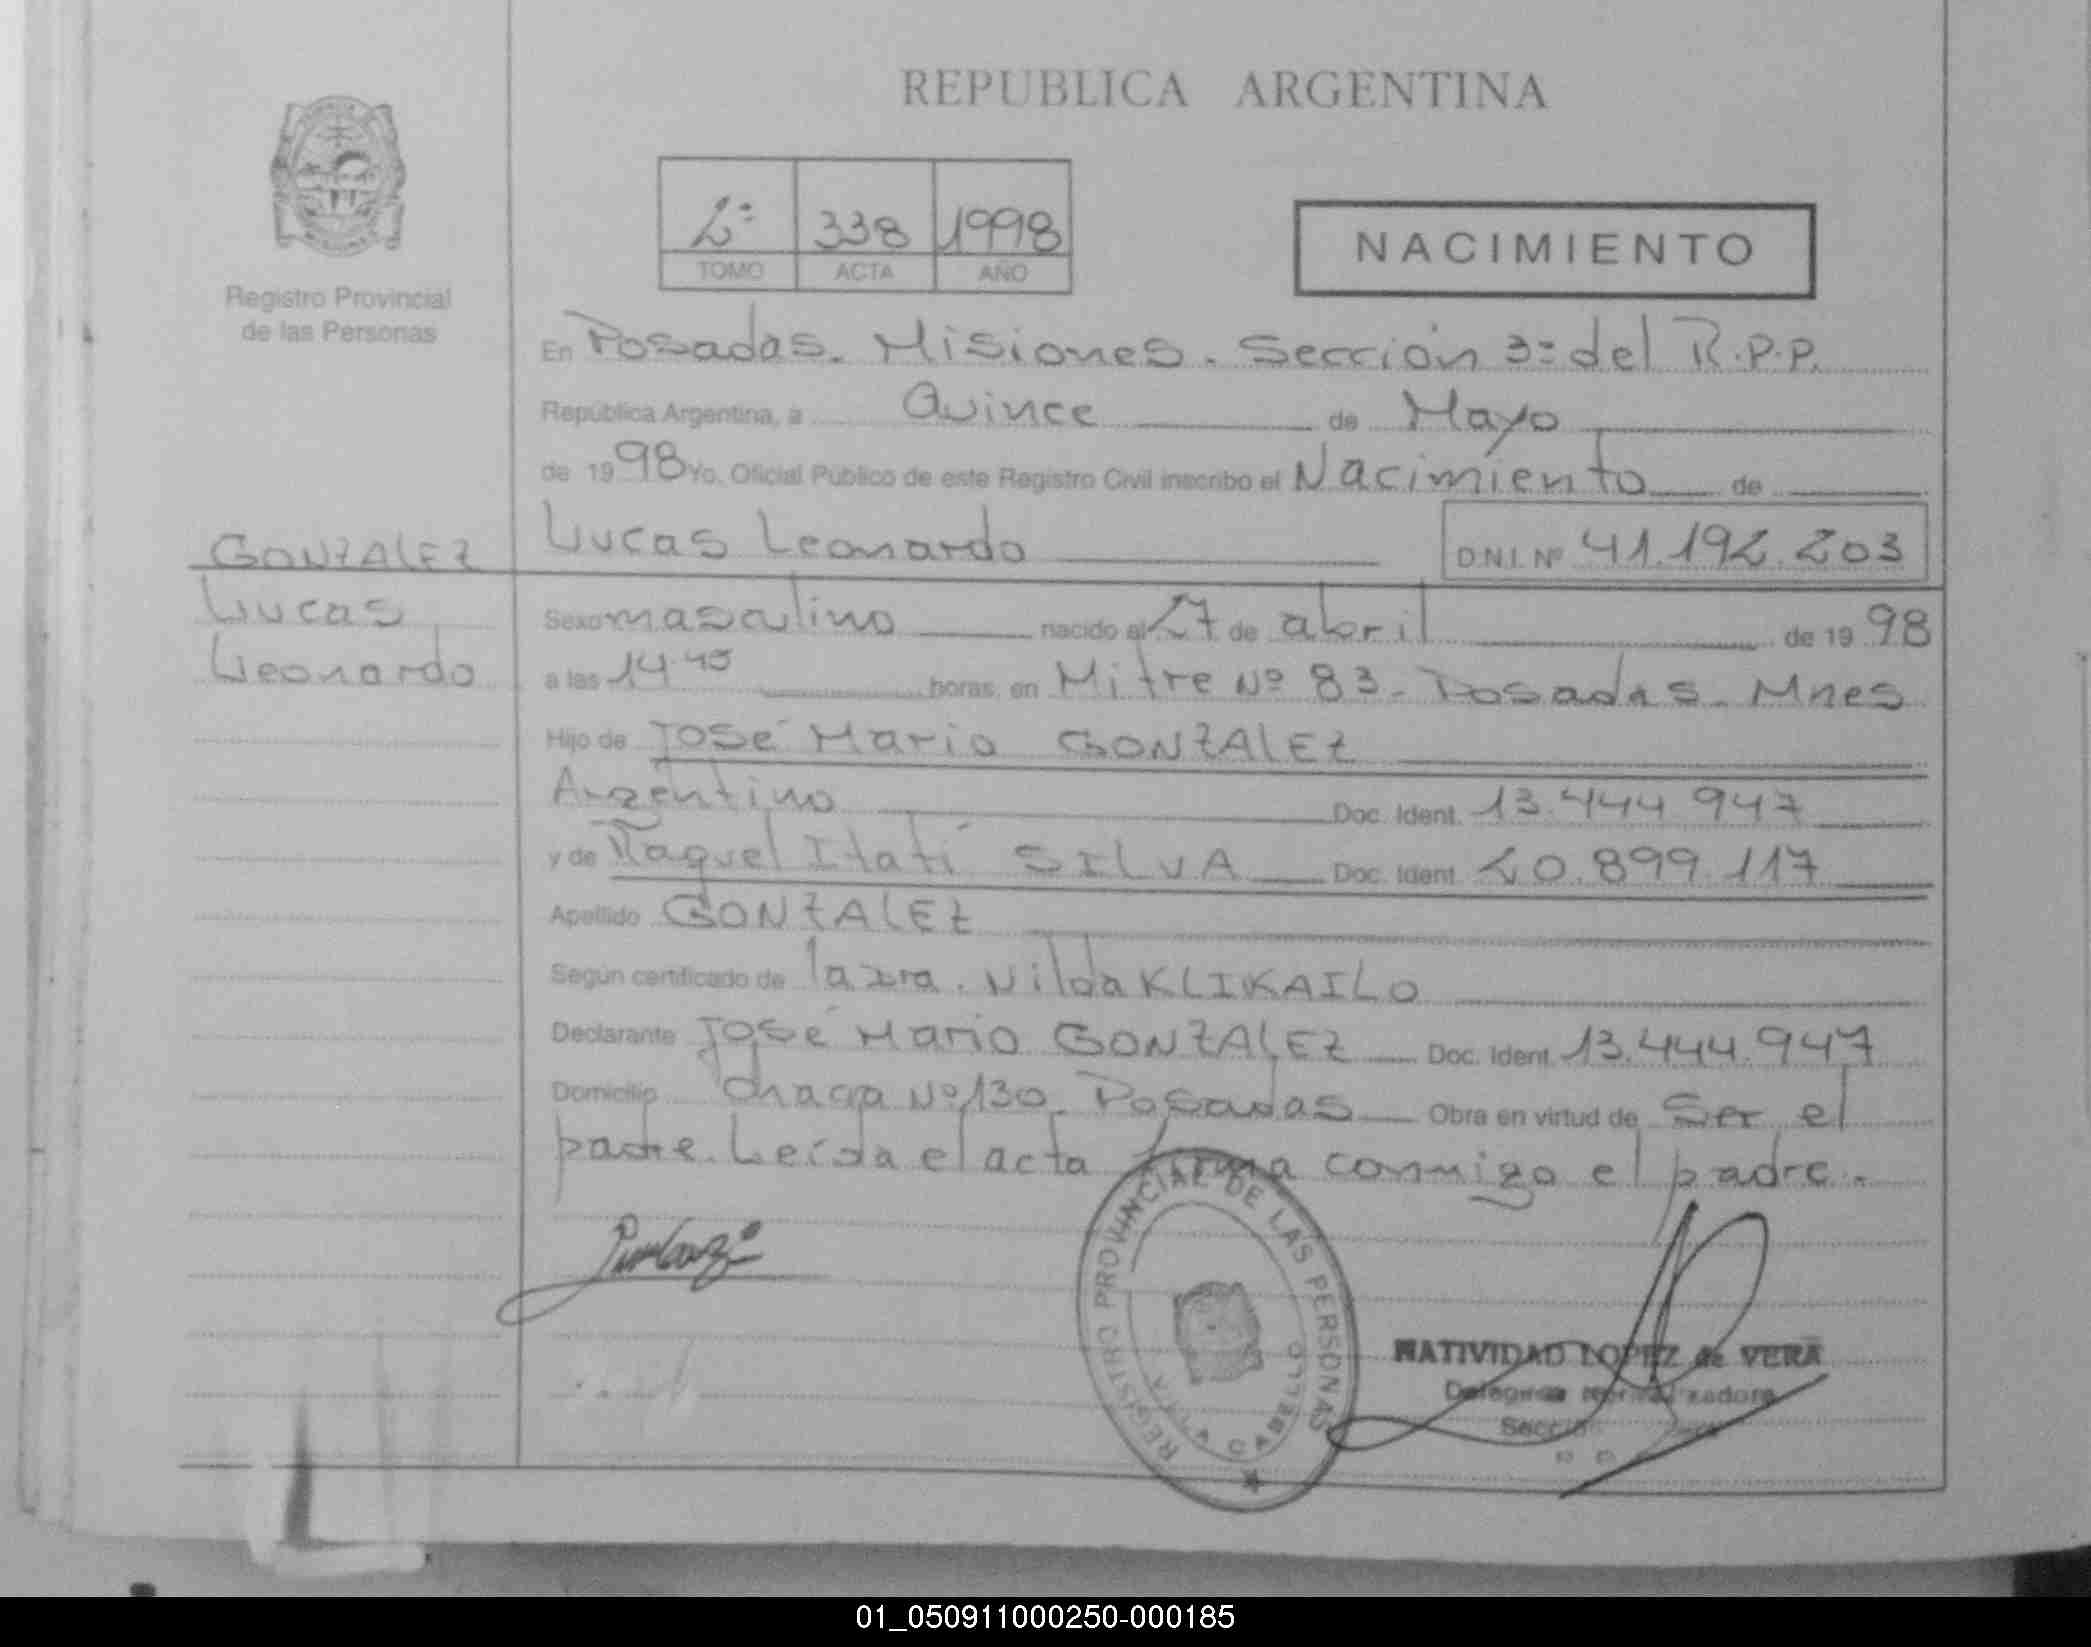 REPUBLICA ARGENTINA
2º 338 1998
TOMO ACTA AÑO
NACIMIENTO
Registro Provincial
de las Personas
En Posadas. Misiones. Sección 3º del R.P.P.
República Argentina, a Quince de Mayo
de 1998 Yo. Oficial Público de este Registro Civil inscribo el Nacimiento de
Lucas Leonardo D.N.I. Nº 41.192.203
GONZALEZ
Lucas
Leonardo
Sexo masculino nacido el 27 de abril de 1998
a las 14.45 horas, en Mitre Nº 83. Posadas. Mnes
Hijo de José Mario GONZALEZ
Argentino Doc. Ident. 13.444 947
y de Raquel Itatí SILVA Doc. Ident. 20.899.117
Apellido GONZALEZ
Según certificado de la Nilda KLIKAILO
Declarante José Mario GONZALEZ Doc. Ident. 13.444.947
Domicilio Chacra Nº 130. Posadas Obra en virtud de Ser el
padre. Leída el acta firma conmigo el padre.
REGISTRO PROVINCIAL DE LAS PERSONAS
VILLA CABELLO
NATIVIDAD LOPEZ de VERA
Delegada
Sección
01_050911000250-000185